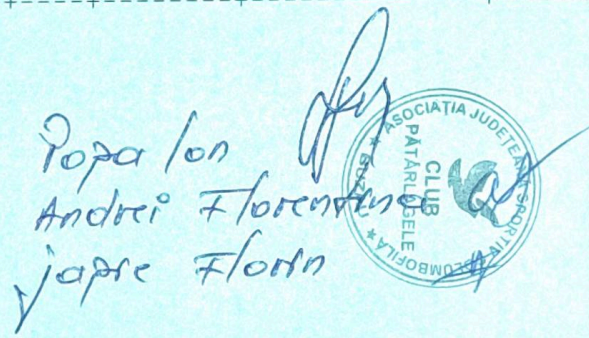 Popa Ion
Andrei Florentina
Japre Florin
ASOCIAȚIA JUDEȚEANĂ SPORTIVĂ COLUMBOFILĂ * BUZĂU *
CLUB
PĂTÂRLAGELE